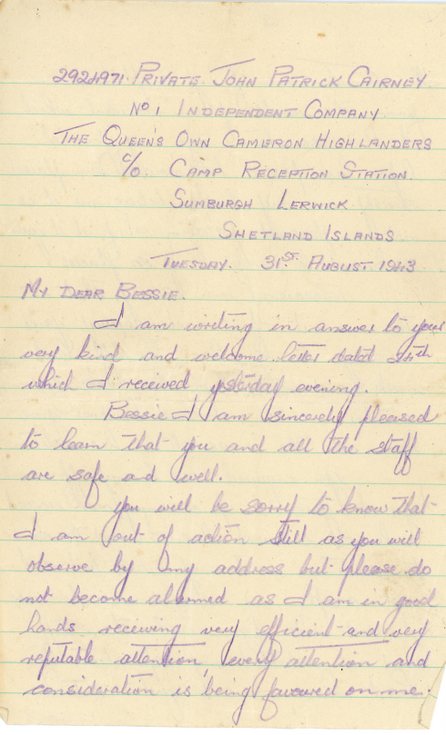 2924971 PRIVATE JOHN PATRICK CAIRNEY
No 1 INDEPENDENT COMPANY
THE QUEEN'S OWN CAMERON HIGHLANDERS
C/O. CAMP RECEPTION STATION.
SUMBURGH LERWICK
SHETLAND ISLANDS
TUESDAY. 31ST. AUGUST 1943
MY DEAR BESSIE.
I am writing in answer to your
very kind and welcome letter dated 24th
which I received yesterday evening.
Bessie I am sincerely pleased
to learn that you and all the staff
are safe and well.
you will be sorry to know that
I am out of action still as you will
observe by my address but please do
not become alarmed as I am in good
hands receiving very efficient and very
reputable attention, every attention and
consideration is being favoured on me.